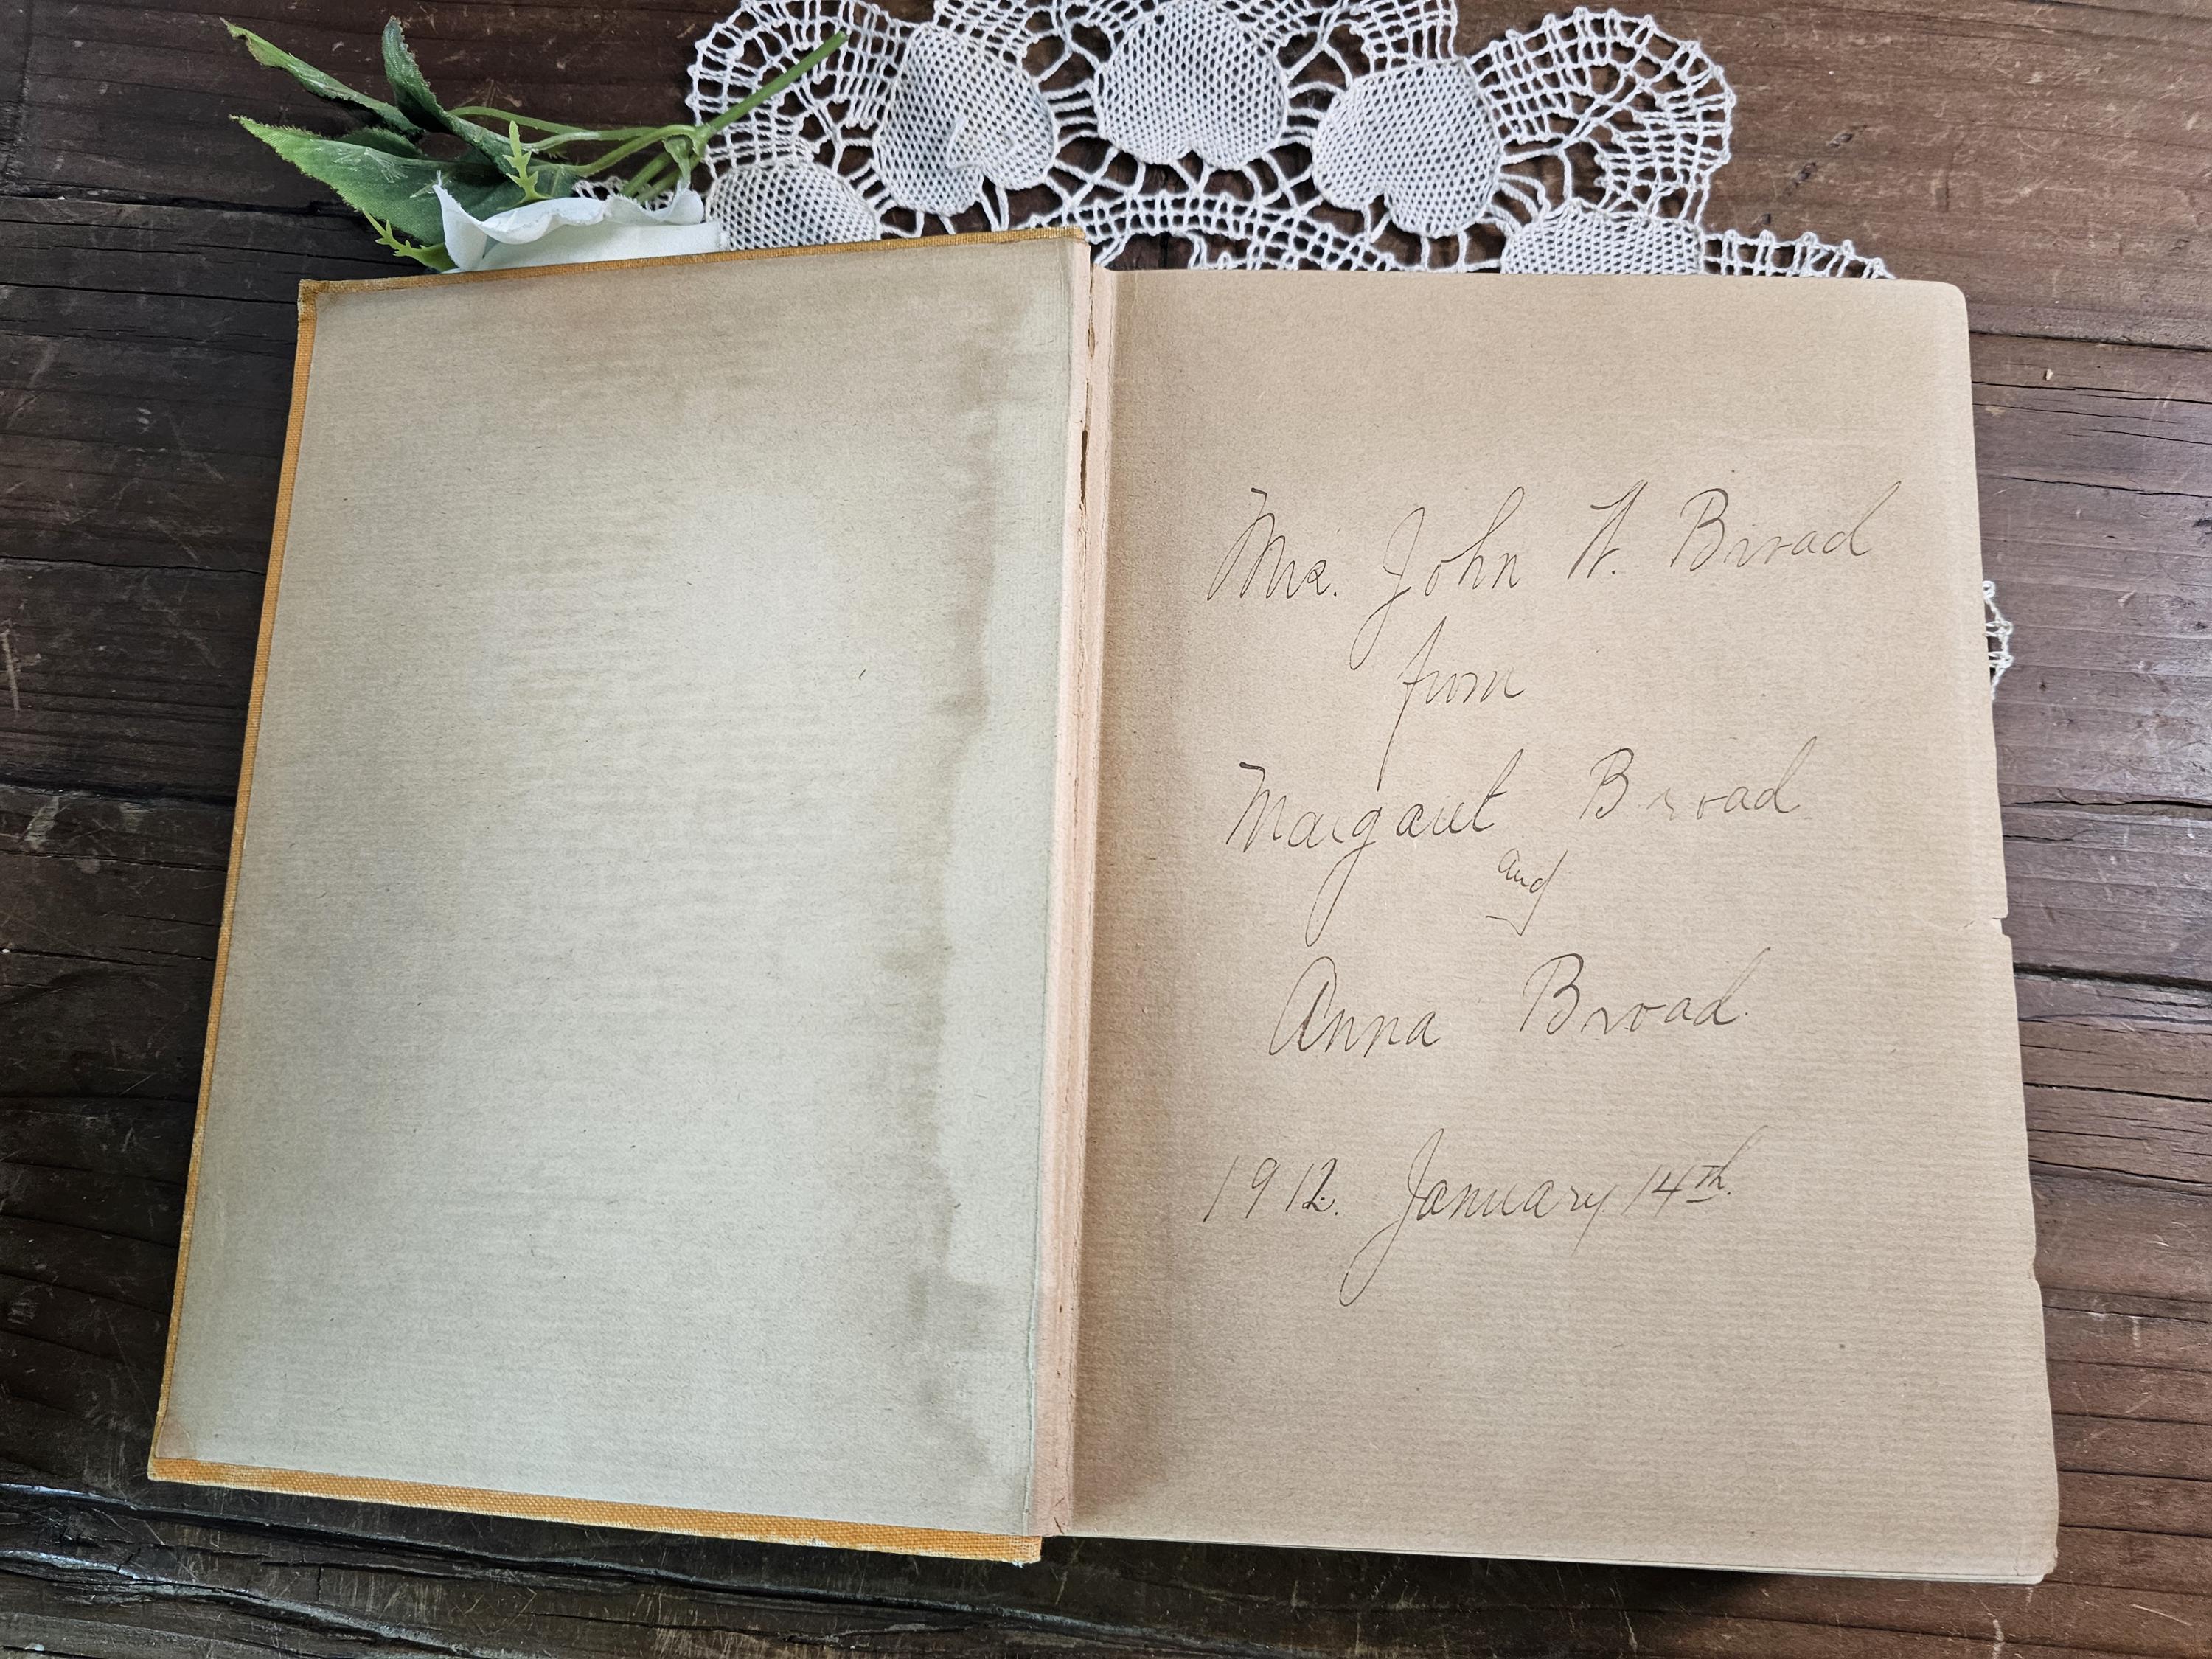 Mrs. John W. Broad
from
Margaret Broad
and
Anna Broad.
1912. January 14th.